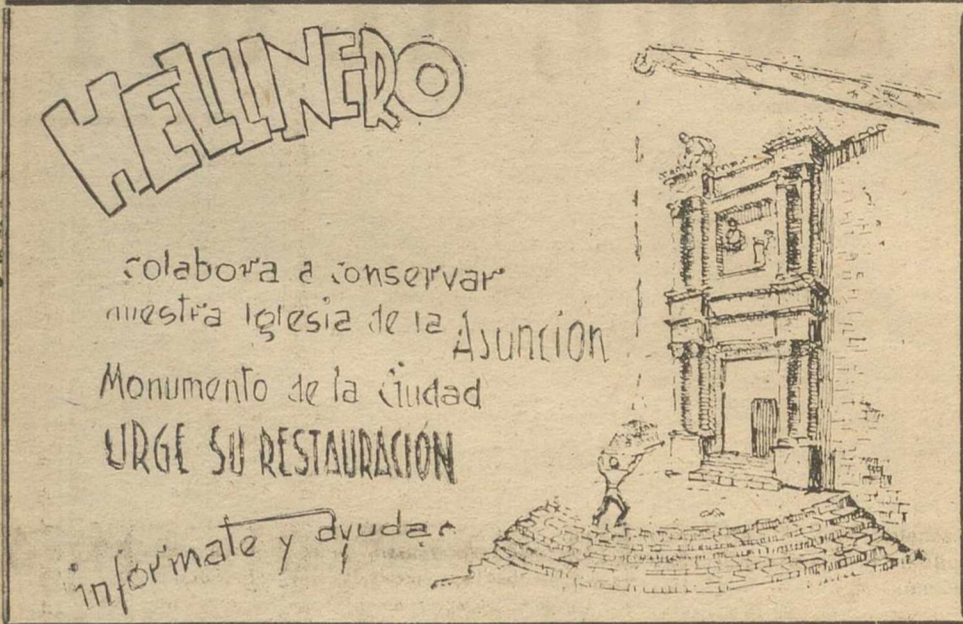 HELLINERO
colabora a conservar
nuestra Iglesia de la Asunción
Monumento de la Ciudad
URGE SU RESTAURACIÓN
informate y ayuda